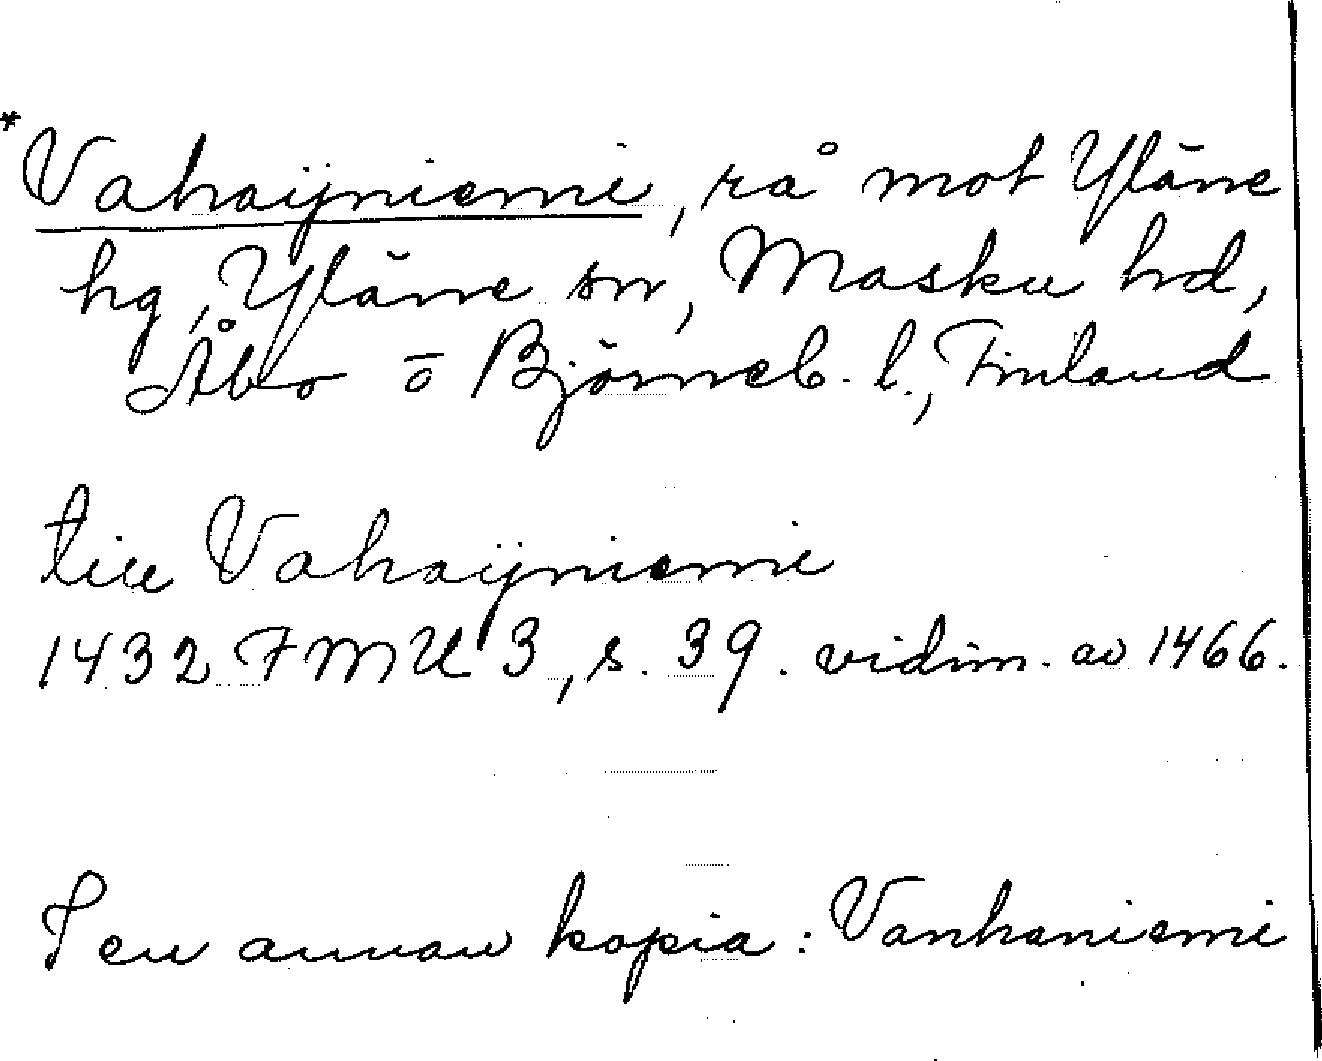 *Vahaijniemi, rå mot Yläne
hg, Yläne sn, Masku hd,
Åbo o Björneb. l., Finland
till Vahaijniemi
1432 FMU 3, s. 39. vidim. av 1466.
I en annan kopia: Vanhaniemi